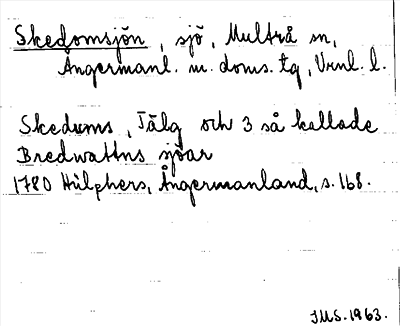 Skedomsjön, sjö, Multrå sn,
Ångermanl. m. doms. tg, Vrnl. l.
Skedums, Tälg och 3 så kallade
Bredwattns sjöar
1780 Hülphers, Ångermanland, s. 168.
IMS. 1963.